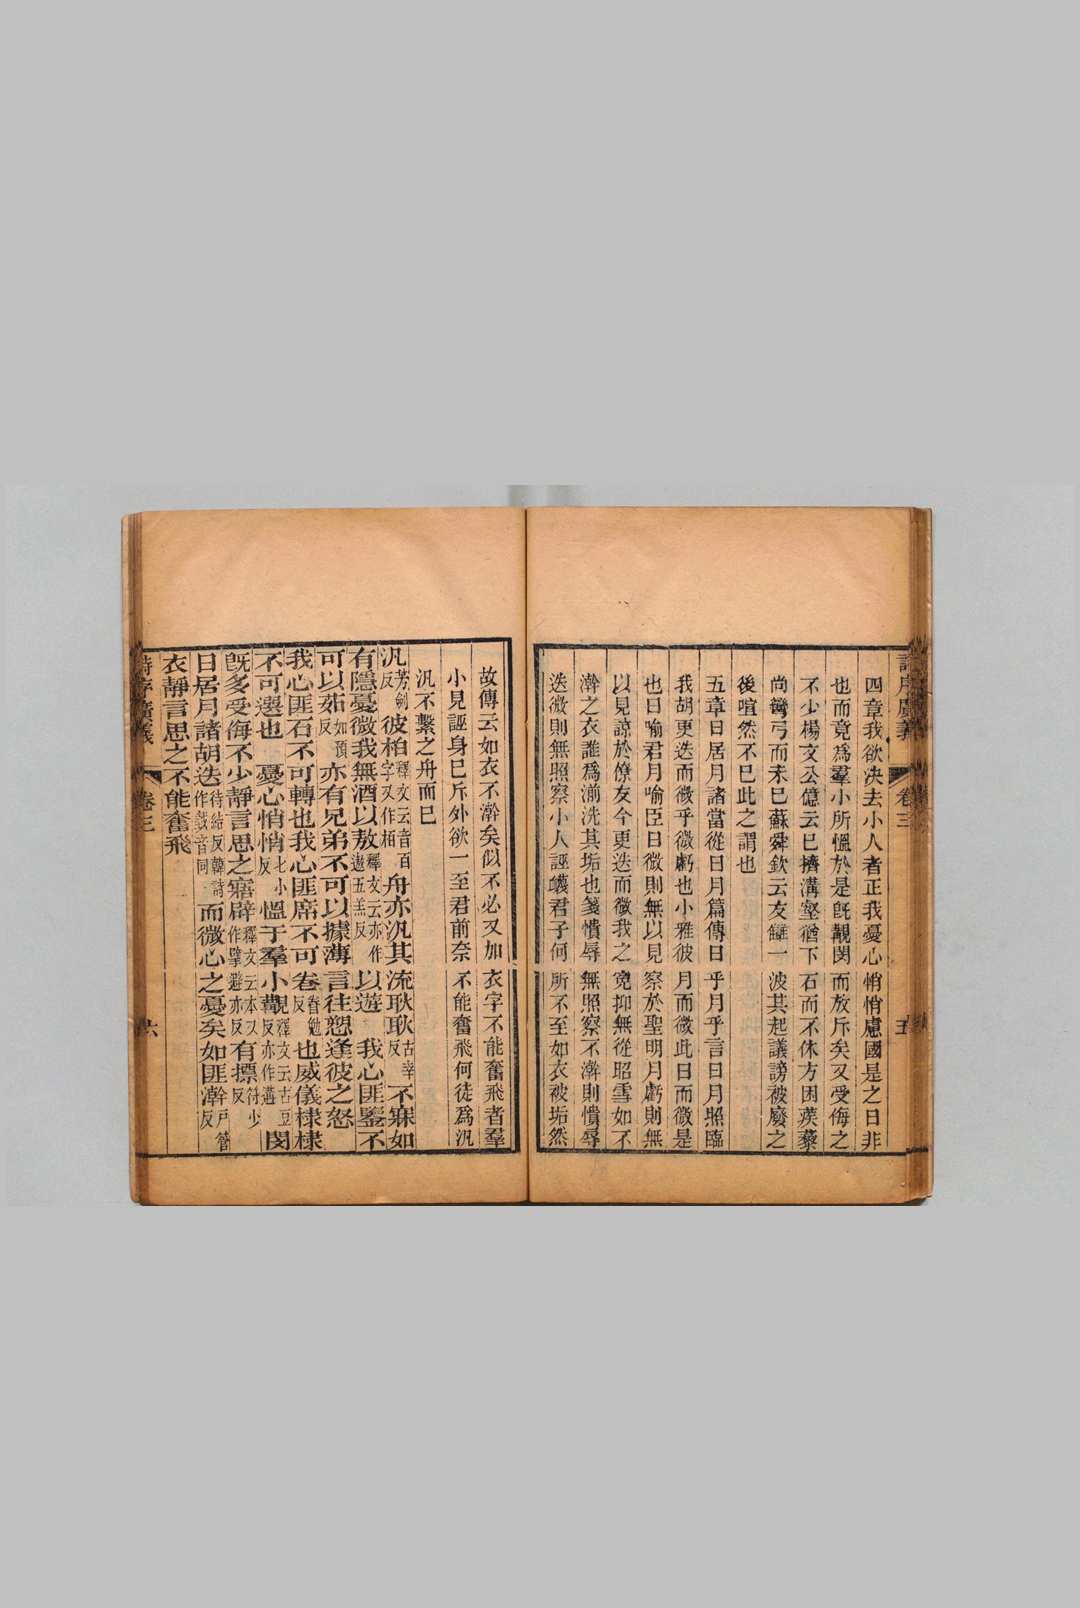 四章我欲决去小人者正我憂心悄悄慮國是之日非
也而竟爲羣小所慍於是旣覯閔而放斥矣又受侮之
不少楊文公億云已擠溝壑猶下石而不休方困蒺藜
尚彎弓而未已蘇舜欽云友讎一波其起議謗被廢之
後喧然不已此之謂也
五章日居月諸當從日月篇傳日乎月乎言日月照臨
我胡更迭而微乎微虧也小雅彼月而微此日而微是
也日喻君月喻臣日微則無以見察於聖明月虧則無
以見諒於僚友今更迭而微我之寃抑無從昭雪如不
澣之衣誰爲湔洗其垢也箋憒辱無照察不澣則憒辱
迭微則無照察小人誣衊君子何所不至如衣被垢然
故傳云如衣不澣矣似不必又加衣字不能奮飛者羣
小見誣身已斥外欲一至君前奈不能奮飛何徒爲汎
汎不繫之舟而已
汎芳劒反彼柏釋文云音百字又作栢舟亦汎其流耿耿古幸反不寐如
有隱憂微我無酒以敖釋文云亦作遨五羔反以遊　我心匪鑒不
可以茹如預反亦有兄弟不可以據薄言往愬逢彼之怒
我心匪石不可轉也我心匪席不可卷眷勉反也威儀棣棣
不可選也　憂心悄悄七小反慍于羣小覯釋文云古豆反亦作遘閔
旣多受侮不少靜言思之寤辟釋文云本又作擘避亦反有摽符少反
日居月諸胡迭待結反韓詩作臷音同而微心之憂矣如匪澣戸管反
衣靜言思之不能奮飛
詩序廣義　卷三　五
詩序廣義　卷三　六